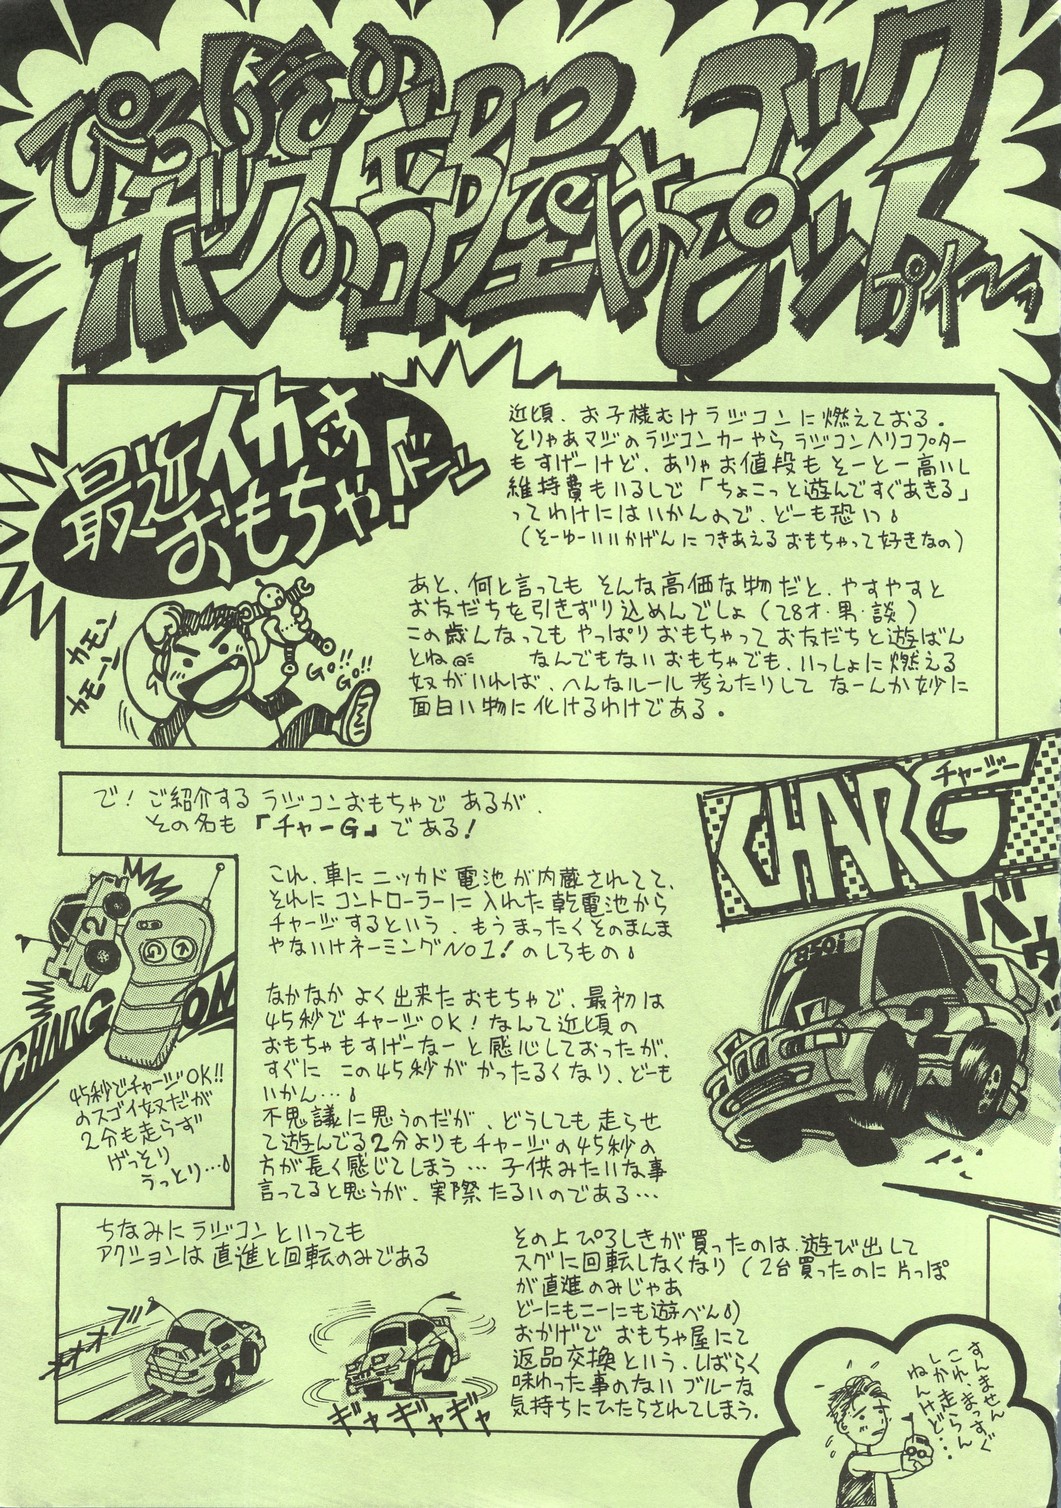 ぴろしきの
ボツの部屋はコックピット
プイーッ
最近イカす
おもちゃ!ドーン
カモン
カモーン
GO!!
GO!
近頃、お子様むけラジコンに燃えておる。
そりゃあマジのラジコンカーやらラジコンヘリコプター
もすげーけど、ありゃお値段もそーとー高いし
維持費もいるしで「ちょこっと遊んですぐあきる」
ってわけにはいかんので、どーも恐い。
(そーゆーいいかげんにつきあえるおもちゃって好きなの)
あと、何と言ってもそんな高価な物だと、やすやすと
お友だちを引きずり込めんでしょ(28才・男・談)
この歳んなってもやっぱりおもちゃってお友だちと遊ばん
とね なんでもないおもちゃでも、いっしょに燃える
奴がいれば、へんなルール考えたりして なーんか妙に
面白い物に化けるわけである。
で!ご紹介するラジコンおもちゃであるが、
その名も「チャーG」である!
CHARG
チャージー
バウッ
850i
2
これ、車にニッカド電池が内蔵されてて、
それにコントローラーに入れた乾電池から
チャージするという、もうまったくそのまんま
やないけネーミングNo1!のしろもの。
CHARG
ON
45秒でチャージOK!!
のスゴイ奴だが
2分も走らず
げっとり
うっとり…。
なかなかよく出来たおもちゃで、最初は
45秒でチャージOK!なんて近頃の
おもちゃもすげーなーと感心しておったが、
すぐに この45秒がかったるくなり、どーも
いかん…。
不思議に思うのだが、どうしても走らせ
て遊んでる2分よりもチャージの45秒の
方が長く感じてしまう…子供みたいな事
言ってると思うが、実際たるいのである…
ちなみにラジコンといっても
アクションは直進と回転のみである
ギャギャギャ
その上ぴろしきが買ったのは、遊び出して
スグに回転しなくなり(2台買ったのに片っぽ
が直進のみじゃあ
どーにもこーにも遊べん。)
おかげでおもちゃ屋にて
返品交換という、しばらく
味わった事のないブルーな
気持ちにひたらされてしまう。
すんません
これ、まっすぐ
しか走らん
ねんけど…